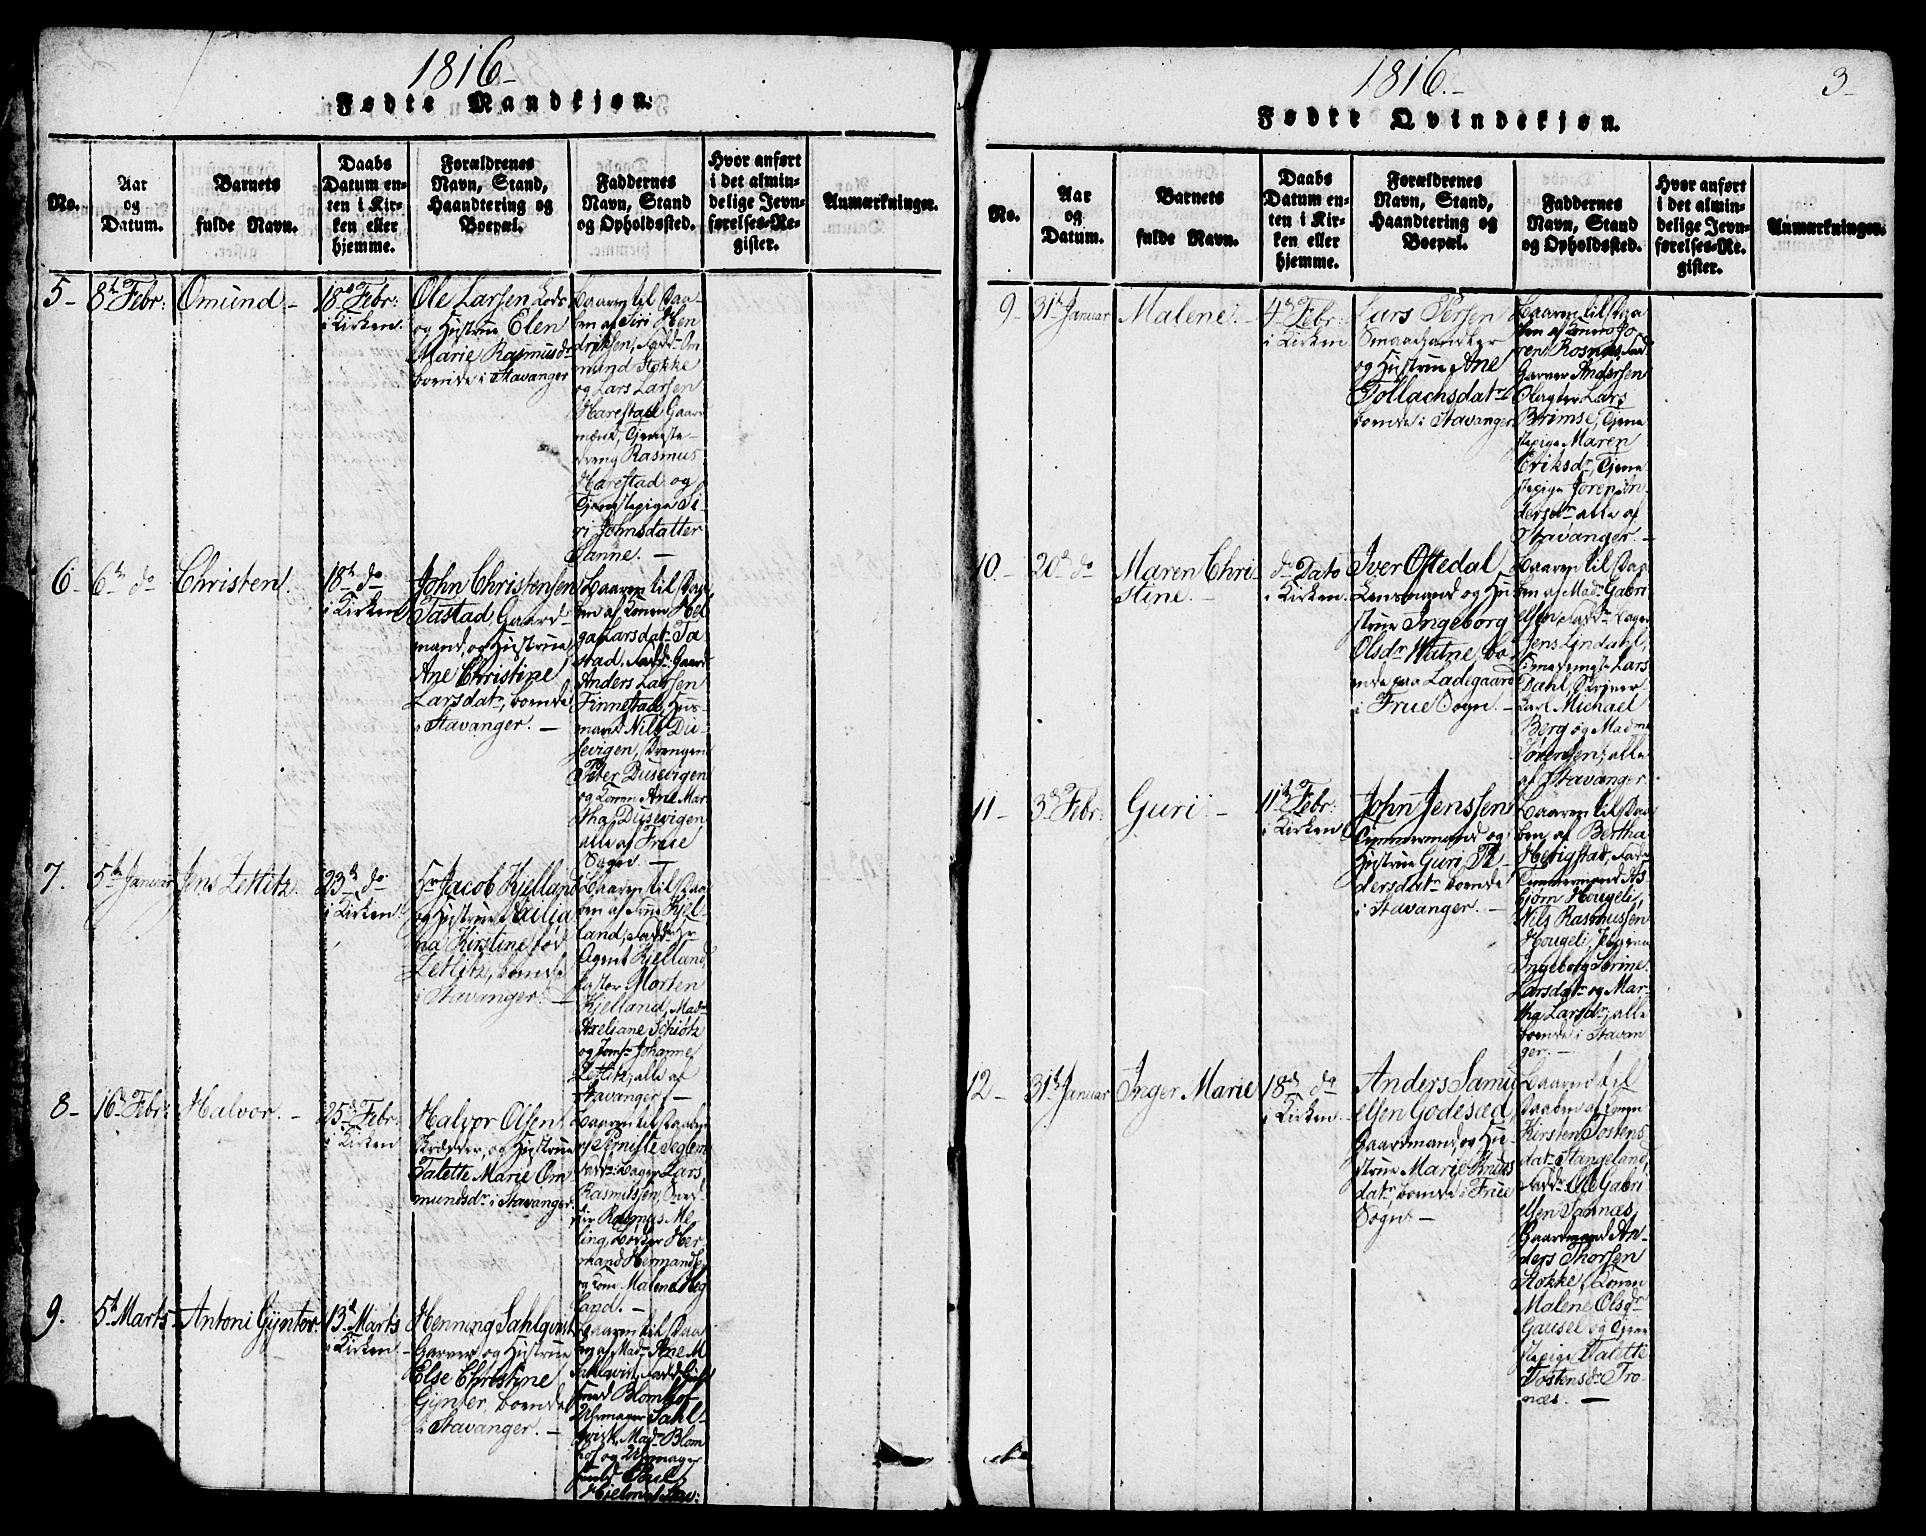 1816-
Fødte Mandkjøn.
No.
Aar
og
Datum.
Barnets
fulde Navn.
Daabs
Datum en-
ten i Kir-
ken eller
hjemme.
Forældrenes
Navn, Stand,
Haandtering og
Boepæl.
Faddernes
Navn, Stand
og Opholdssted.
Hvor anført
i det almin-
delige Jevn-
førelses-Re-
gister.
Anmærkninger.
5- 8de Febr: Omund.-
18de Febr:
i Kirken.
Ole Larsen Lods
og Hustrue Elen
Marie Rasmusdr
boende i Stavanger
Baaren til Daa-
ben af Siri Hen
driksen, Fadd: Om
mund Stokke
og Lars Larsen
Harestad Gaard
mænd, Tjeneste-
dreng Rasmus
Harestad og
Tjenestepige Si-
ri Johnsdatter
Sanne. -
6- 6te do Christen.
18de do
i Kirken
John Christensen
Tastad, Gaard-
mand, og Hustrue
Ane Christine
Larsdatr, boende
i Stavanger. -
Baaren til Daa-
ben af Konen Hel
ga Larsdatr Ta
stad, Fadd: Gaard
Anders Larsen
Finnestad, Hus-
mand Nils Du-
sevigen, Drengen
Peter Dusevigen
og Konen Ane Mar
tha Dusevigen
alle af Frue
Sogn. -
7. 5te Januar Jens Zetlitz
23de do
i Kirken
Hr Jacob Kjelland
og Hustrue Axelia
na Kirstine fød
Zetlitz, boende
i Stavanger. -
Baaren til Daa-
ben af Frue Kjel-
land, Fadd: Hr
Agent Kjelland,
Pastor Morten
Kjelland, Madm
Axeliane Schiøtz
og Jomfr Johanne
Zetlitz, alle af
Stavanger. -
8- 16de Febr: Halvor. -
25de Febr:
i Kirken
Halvor Olsen
og Hustrue
Talette Marie Om
mundsdr i Stavanger.
Baaren til Daaben
af Pernille Seglem
Fadd: Lars
Rasmussen, Sned-
ker Rasmus Me-
ling, Her
mand Hermandsen
og Kone Malena Heg
land. -
9. 5te Marts Antoni Gynter.
13de Marts
i Kirken
Henning Sahlqvist
Garver og Hustrue
Else Christine
Gynter, boende
i Stavanger. -
Baaren til Daa
ben af Madm Ane M
Sahlqvist, Fadd:
Blomhof
Uhrmager Sahl-
qvist, Madm Blom
hof og Uhrmager
Poul
Hielm
1816.-
3-
Fødte Qvindekjøn.
No.
Aar
og
Datum.
Barnets
fulde Navn.
Daabs
Datum en-
ten i Kir-
ken eller
hjemme.
Forældrenes
Navn, Stand,
Haandtering og
Boepæl.
Faddernes
Navn, Stand
og Opholdssted.
Hvor anført
i det almin-
delige Jevn-
førelses-Re-
gister.
Anmærkninger.
9- 31te Januar Malene. -
4de Febr:
i Kirken
Lars Persen
Smaahandler
og Hustrue Ane
Tollachsdatr
boende i Stavanger
Baaren til Daa
ben af Konen Jo-
ren Rosnæs, Fad:
Garver Andersen
Lars
Brimse, Tjene
stepige Maren
Eriksdr, Tjene
stepige Joren An-
dersdr alle af
Stavanger. -
10.- 20de do Maren Chri-
stine. -
do Dato
i Kirken.
Iver Oftedal
Lensmand og Hu
strue Ingeborg
Olsdr Watne, bo-
ende paa Ladegaard
i Frue Sogn. -
Baaren til Daa
ben af Madm Gabri
elsen, Fadd:
Jens Lindahl,
Lars
Dahl,
Carl Michael
Berg og Madme
Sørensen, alle
af Stavanger
11- 3de Febr: Guri. -
11te Febr:
i Kirken
John Jenssen
Tømmermand og
Hustrue Guri Pe
dersdatr boende
i Stavanger. -
Baaren til Daa
ben af Bertha
Hetigstad, Fad:
Tømmermand As
bjørn Hougeli,
Nils Rasmussen
Hougeli,
Ingeborg Serine
Larsdatr og Mar-
tha Larsdr, alle
boende i Stavan
ger. -
12- 31te Januar Inger Marie
18de do
i Kirken.
Anders Samu
elsen Godesæd
Gaardmand, og Hu-
strue Marie Knuds
datr, boende i Frue
Sogn -
Baaren til
Daaben af Konen
Kirsten Tostens-
datr Stangeland,
Fadd: Ole Gabri
elsen Sannæs,
Gaardmand An-
ders Thorsen
Stokke, Konen
Malene Olsdr
Gausel og Tjene
stepige Valette
Tostensdr Tro-
næs. -